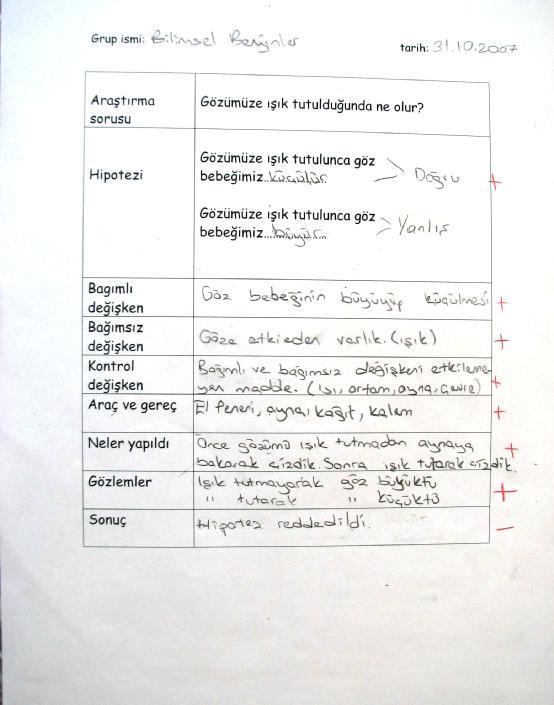 Grup ismi: Bilimsel Beyinler
tarih: 31.10.2007
Araştırma sorusu
Gözümüze ışık tutulduğunda ne olur?
Hipotezi
Gözümüze ışık tutulunca göz
bebeğimiz..küçülür.
Doğru
+
Gözümüze ışık tutulunca göz
bebeğimiz...büyür...
Yanlış
Bagımlı değişken
Göz bebeğinin büyüyüp küçülmesi
+
Bağımsız değişken
Göze etki eden varlık. (ışık)
+
Kontrol değişken
Bağımlı ve bağımsız değişkeni etkileme-
yen madde. (ısı, ortam, ayna, çevre)
+
Araç ve gereç
El feneri, ayna, kağıt, kalem
+
Neler yapıldı
Önce gözümü ışık tutmadan aynaya
bakarak çizdik. Sonra ışık tutarak çizdik.
+
Gözlemler
Işık tutmayarak göz büyüktü
" tutarak " küçüktü
+
Sonuç
Hipotez reddedildi.
–